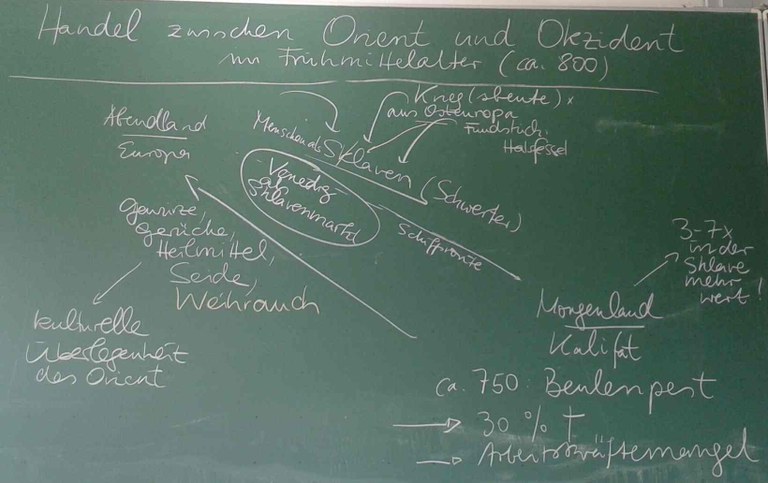 Handel zwischen Orient und Okzident
im Frühmittelalter (ca. 800)
Abendland
Europa
Menschen als Sklaven (Schwerter)
Krieg(sbeute) x
aus Osteuropa
Fundstück:
Halsfessel
Venedig
als
Sklavenmarkt
Schiffsroute
Gewürze,
Gerüche,
Heilmittel,
Seide,
Weihrauch
kulturelle
Überlegenheit
des Orient
3-7x
ist der
Sklave
mehr
wert!
Morgenland
Kalifat
ca. 750: Beulenpest
→ 30 % †
→ Arbeitskräftemangel